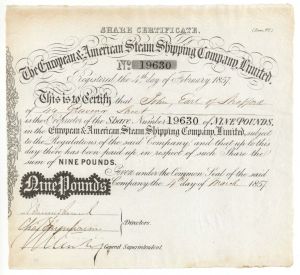 SHARE CERTIFICATE.
The European & American Steam Shipping Company, Limited.
No. 19630
Registered the 4th day of February 1857.
This is to Certify that John Earl of
Grosvenor
is the Proprietor of the Share Number 19630 of NINE POUNDS,
in the European & American Steam Shipping Company, Limited, subject
to the Regulations of the said Company; and that up to this
day there has been paid up in respect of such Share the
sum of NINE POUNDS.
Given under the Common Seal of the said
Company, the 4th day of March 1857
Nine Pounds
Directors.
General Superintendent.